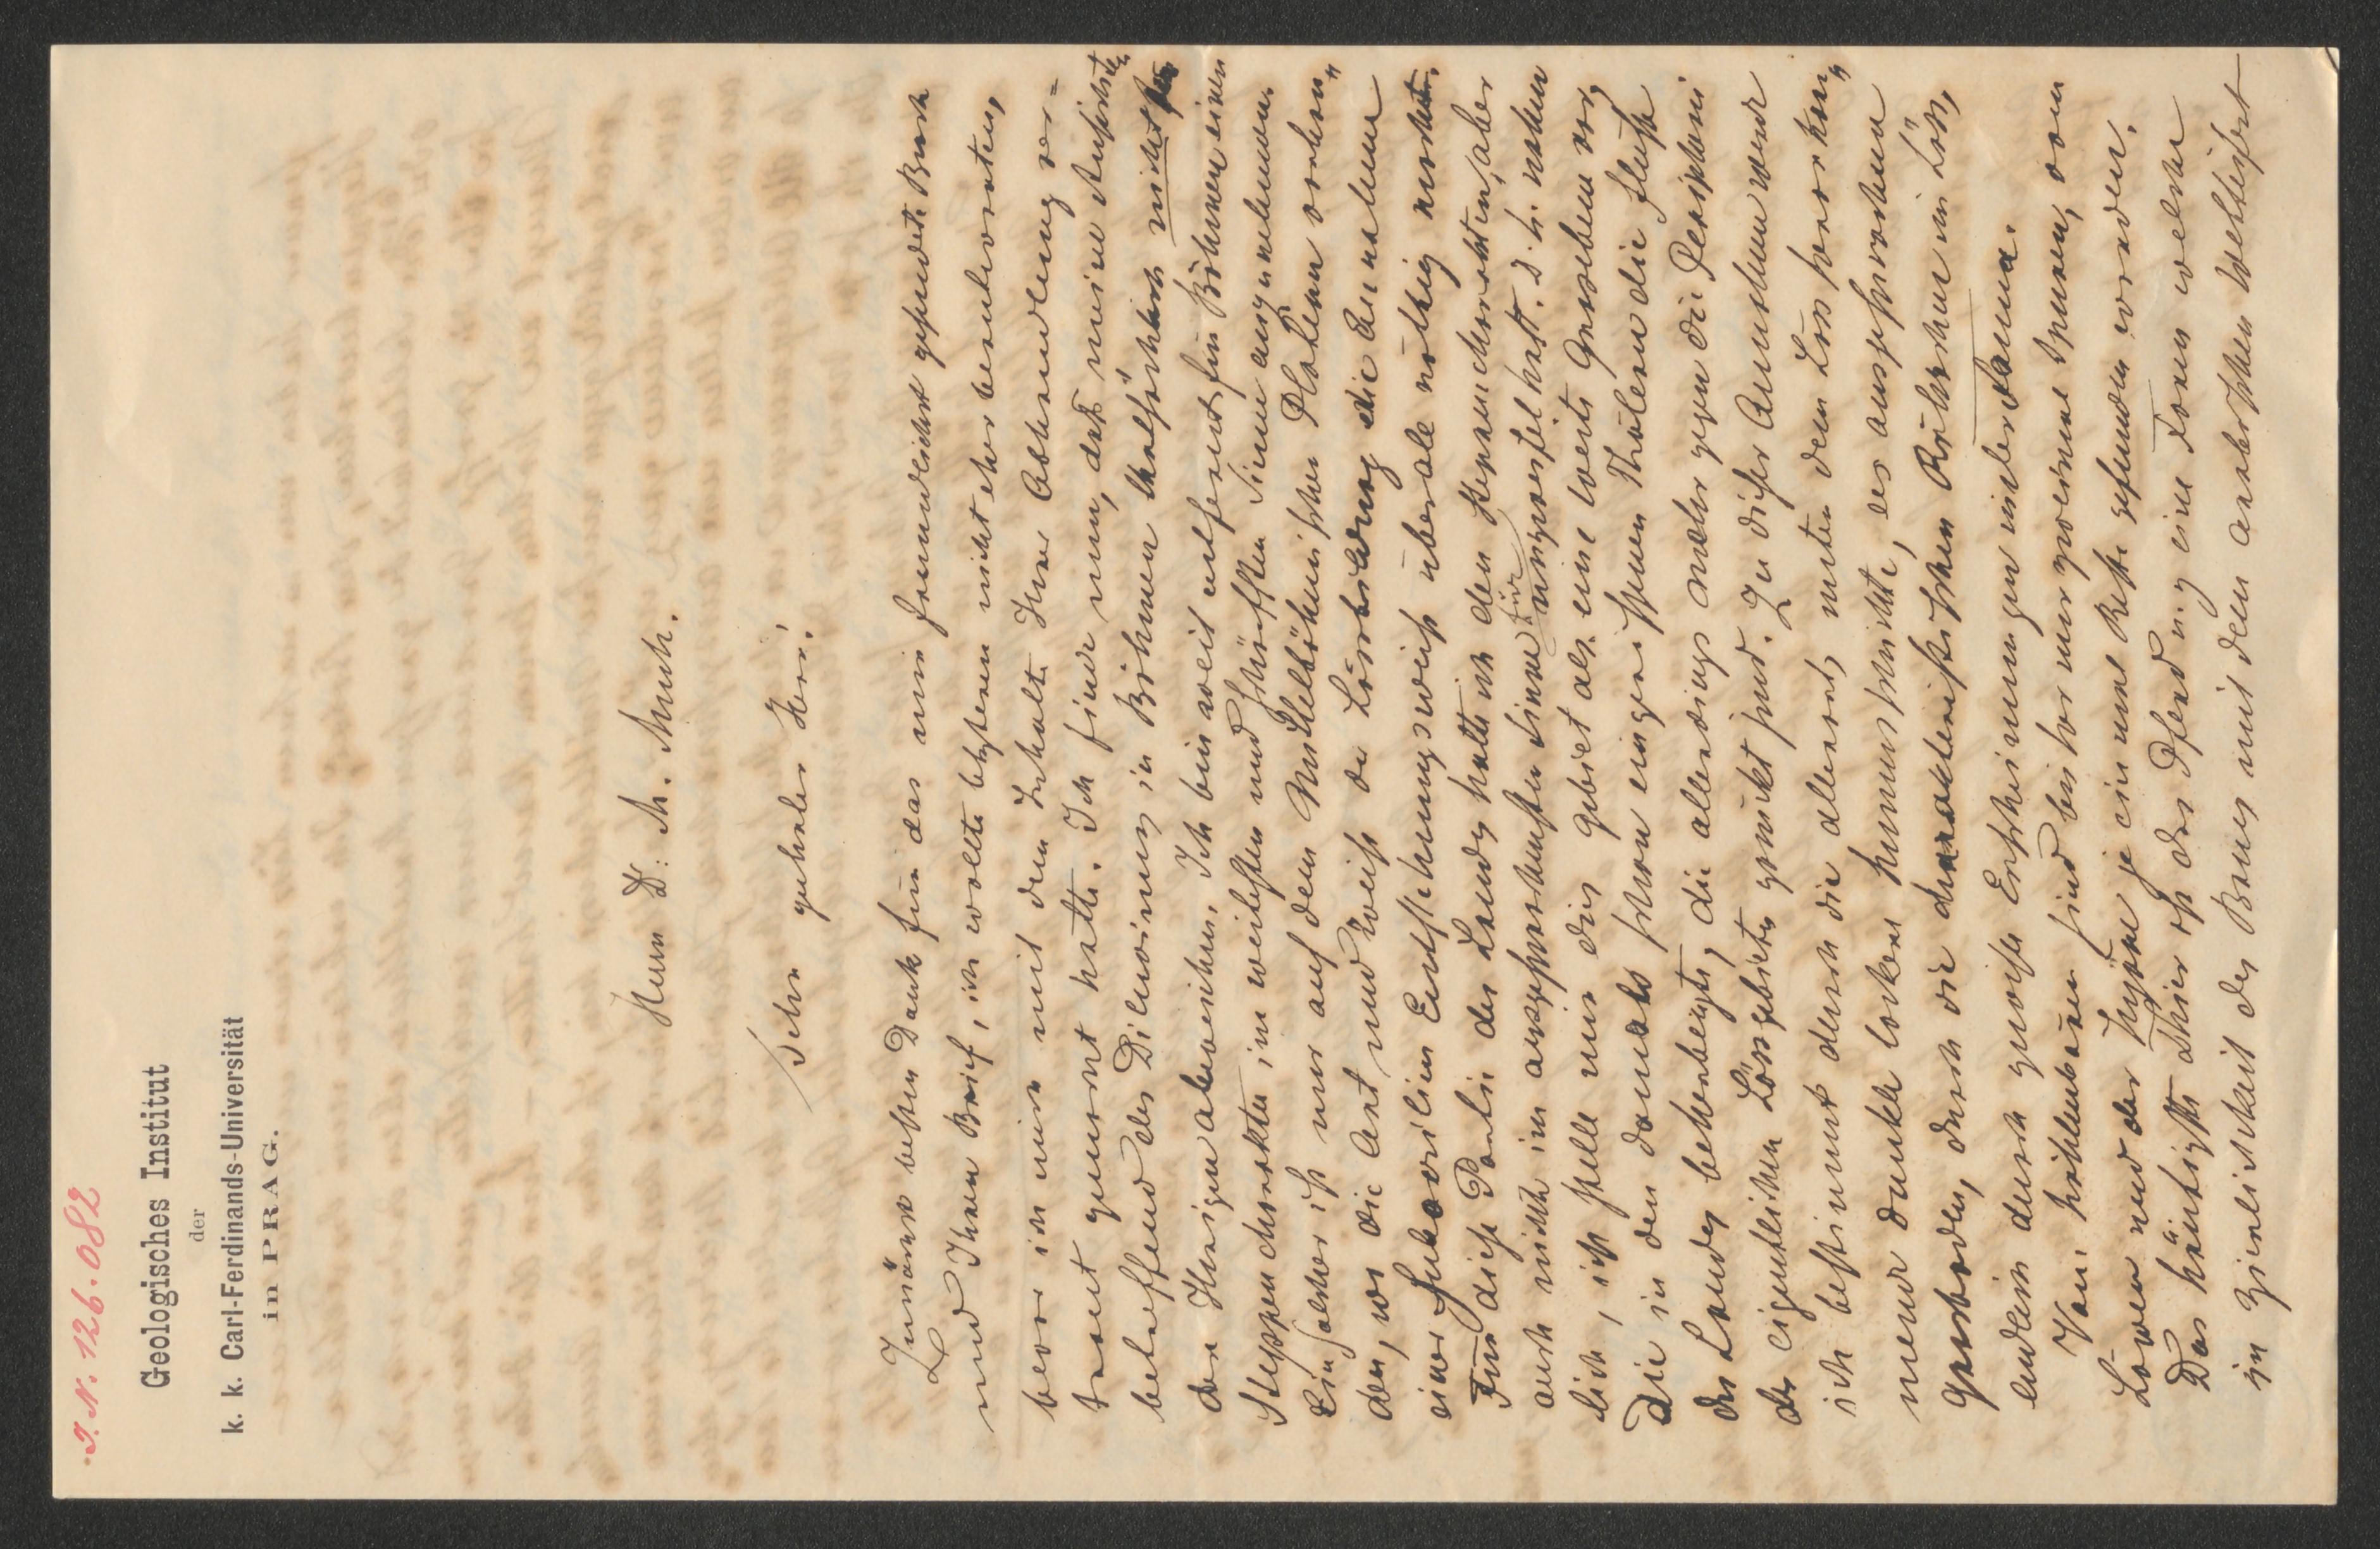 I. N. 126.082
Geologisches Institut
der
k. k. Carl-Ferdinands-Universität
in PRAG.
Herrn Dr. M. Much.
Sehr geehrter Herr!
Zunächst besten Dank für das mir freundlichst gesendete Buch
und Ihren Brief, ich wollte letzteren nicht eher beantworten,
bevor ich mich mit dem Inhalte Ihrer Abhandlung ver-
traut gemacht hatte. Ich finde nun, daß meine Ansichten
betreffend des Diluviums in Böhmen thatsächlich nicht von
den Ihrigen abweichen. Ich bin weit entfernt für Böhmen einen
Steppencharakter im weitesten und schärfsten Sinne anzunehmen.
Ein solcher ist nur auf dem Mittelböhmischen Plateau vorhan-
den, wo die Art und Weise der Lössbildung die Annahme
einer subaerilen Entstehungsweise überall nöthig macht.
Für diese Partie des Landes halte ich den Steppencharakter, aber
auch nicht im ausgesprochensten Sinne für ungezweifelhaft. d. h. nahm
lich, ich stelle mir dies Gebiet als eine weite Grasebene vor,
die in den damals schon eingerissenen Thälern die Flüsse
des Landes beherbergte, die allerdings mehr gegen die Peripherie
des eigentlichen Lössgebietes gerückt sind. Zu dieser Annahme werde
ich bestimmt durch die allerort, unter dem Löss vorkom-
mende dunkle lockere Humusschichte, des ausgesprochenen
Grasbodens, durch die charakteristischen Röhrchen im Löss,
endlich durch gewisse Erscheinungen in der Fauna.
Vom Höhlenbären sind bisher nur geringe Spuren, vom
Löwen und der Hyäne je einmal Reste gefunden worden.
Das häufigste Thier ist das Pferd u. z. eine Form welche
in Zierlichkeit des Baues mit dem arabischen wetteifert